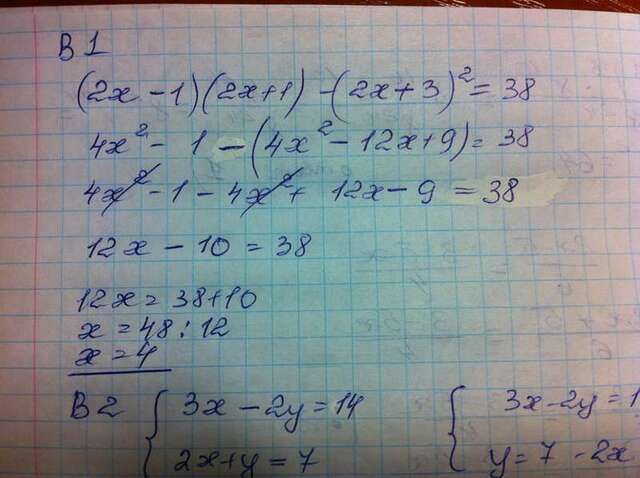 В 1
(2x - 1)(2x+1) - (2x+3)² = 38
4x² - 1 - (4x² - 12x + 9) = 38
4x² - 1 - 4x² + 12x - 9 = 38
12x - 10 = 38
12x = 38+10
x = 48 : 12
x = 4
В 2 { 3x - 2y = 14 { 3x - 2y = 1
2x + y = 7 y = 7 - 2x